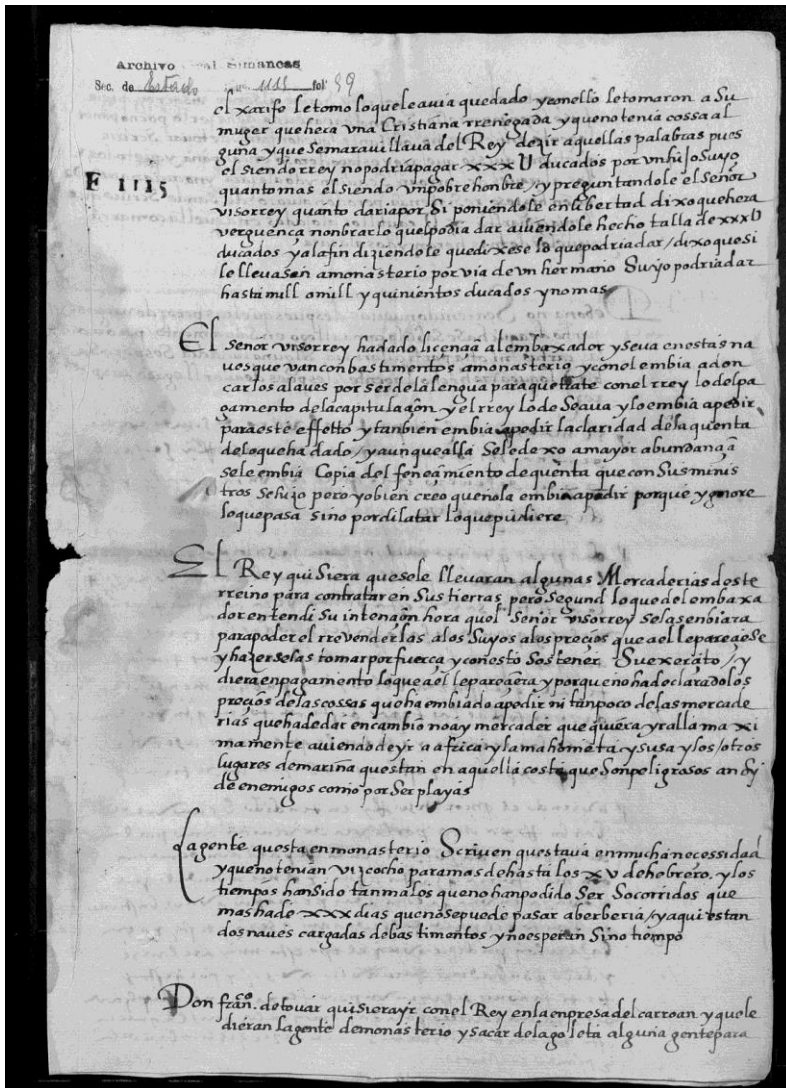 Archivo General Simancas
Sec. de Estado Leg. 1115 fol. 59
F 1115
el xarife le tomo lo que le avia quedado y con ello le tomaron a Su
muger que hera vna Cristiana rrenegada y que no tenia cossa al
guna y que Se maravillava del Rey dezir aquellas palabras pues
el siendo rrey no podria pagar xxx U ducados por vn hijo Suyo
quanto mas el siendo vn pobre honbre / y preguntandole el Señor
visorrey quanto daria por Si poniendole en libertad dixo que hera
verguença nonbrar lo quel podia dar aviendole hecho talla de xxx U
ducados y a la fin diziendole que dixese lo que podria dar / dixo que si
le llevasen a monasterio por via de vn hermano Suyo podria dar
hasta mill o mill y quinientos ducados y no mas
El Señor visorrey ha dado liçençia al embaxador y Se va en estas na
ves que van con bastimentos a monasterio y con el embia a don
carlos alaves por ser de la lengua para que trate con el rrey lo del pa
gamento de la capitulaçion y el rrey lo deseava y lo embia a pedir
para este effetto y tanbien embia a pedir la claridad de la quenta
de lo que ha dado / y aunque alla Se le dexo a mayor abundançia
se le embia Copia del feneçimiento de quenta que con Sus minis
tros Se hizo pero yo bien creo que no la embia a pedir porque ygnore
lo que pasa sino por dilatar lo que pudiere
El Rey quiSiera que se le llevaran algunas Mercaderias deste
rreino para contratar en Sus tierras pero Segund lo que del embaxa
dor entendi Su intençion hora quel Señor visorrey se las enbiara
para poder el rrevenderlas a los Suyos a los preçios que a el le pareçiese
y hazerselas tomar por fuerça y con esto Sostener Su exerçito / y
diera en pagamento lo que a el le pareçiera y porque no ha declarado los
preçios de las cossas que ha embiado a pedir ni tanpoco de las mercade
rias que ha de dar en cambio no ay mercader que quiera yr alla maxi
mamente aviendo de yr a africa y la mahometa y susa y los / otros
lugares de marina questan en aquella costa que Son peligrosos ansy
de enemigos como por Ser playas
La gente questa en monasterio Scriven questava en mucha necessidad
y que no tenian vizcocho para mas de hasta los xv de hebrero. y los
tiempos han sido tan malos que no han podido Ser Socorridos que
mas ha de xxx dias que no se puede pasar a berberia / y aqui estan
dos naves cargadas de bastimentos y no esperan Sino tiempo
Don franco. de tovar quisiera yr con el Rey en la enpresa del carroan y que le
dieran la gente de monasterio y sacar de la goleta alguna gente para